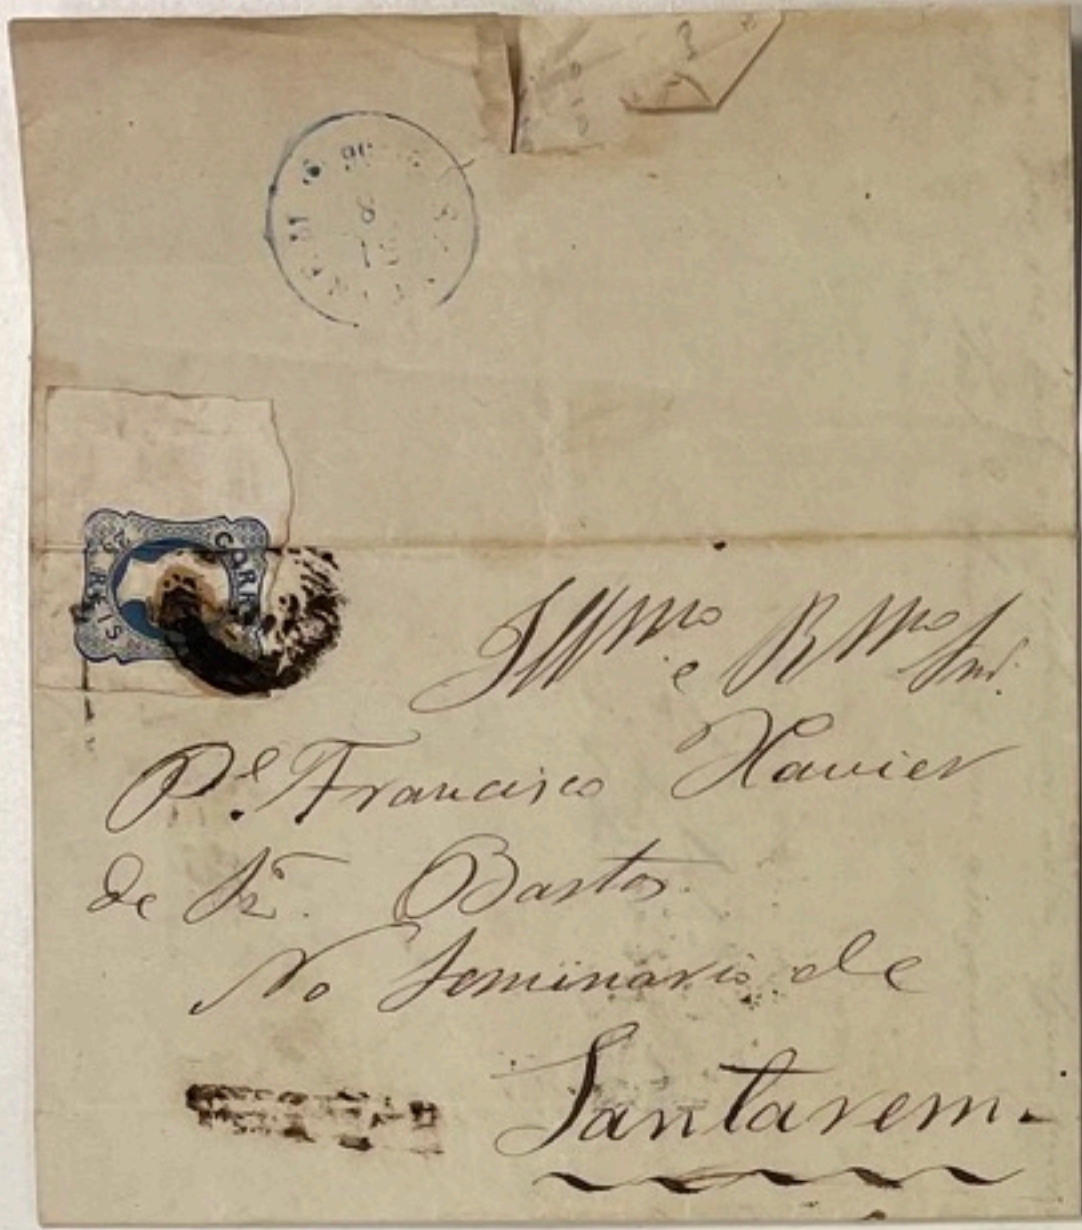 CORR
25 REIS
Illmo e Rmo Snr.
Pe. Francisco Xavier
de Sz. Bastos.
No Seminario de
Santarem.